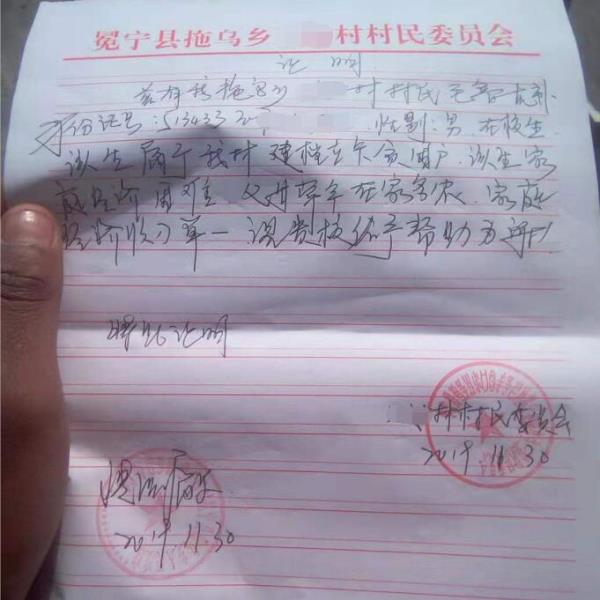 冕宁县拖乌乡 村村民委员会
证 明
兹有我拖乌乡 村村民
身份证号:513433 性别:男 在校生
该生属于我村建档立卡贫困户.该生家
庭经济困难 父母常年在家务农.家庭
经济收入单一 望贵校给予帮助为谢!
特此证明
村村民委员会
2019.11.30
情况属实
2019.11.30